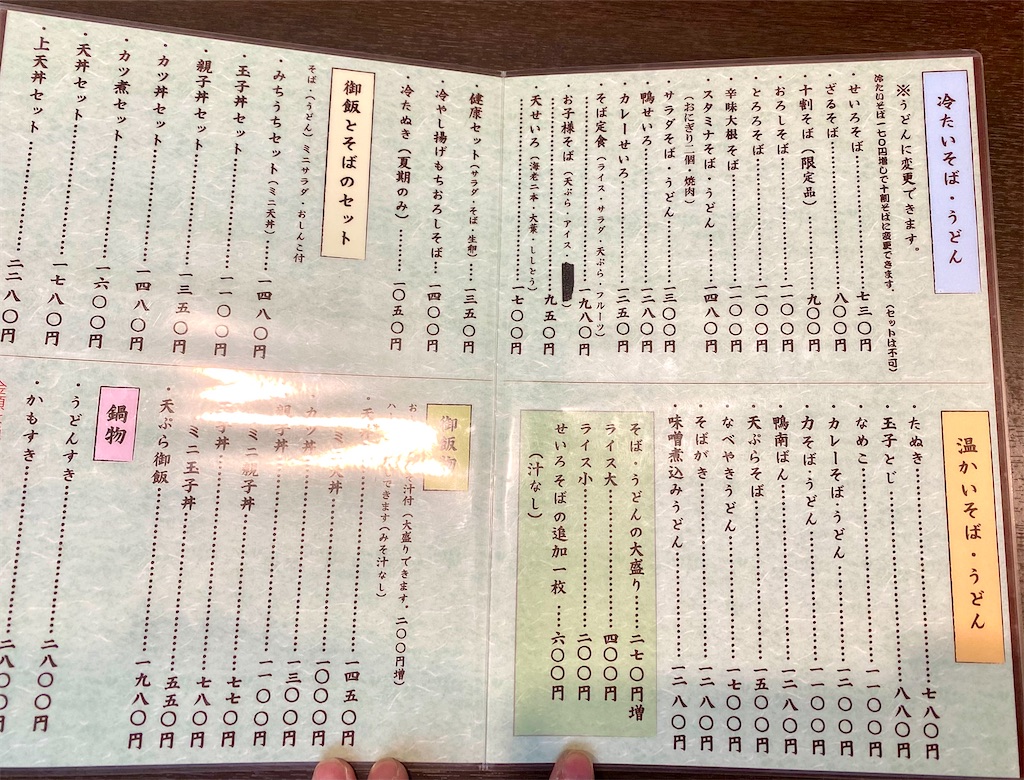 冷たいそば・うどん
※うどんに変更できます。
冷たいそば一七〇円増しで十割そばに変更できます。(セットは不可)
・せいろそば……七三〇円
・ざるそば……八〇〇円
・十割そば(限定品)……九〇〇円
・おろしそば……一〇〇〇円
・とろろそば……一一〇〇円
・辛味大根そば……一一〇〇円
・スタミナそば・うどん……一四八〇円
(おにぎり二個・焼肉)
・サラダそば・うどん……一三〇〇円
・鴨せいろ……一二八〇円
・カレーせいろ……一二五〇円
・そば定食(ライス・サラダ・天ぷら・フルーツ)
……一九八〇円
・お子様そば(天ぷら・アイス)
……九五〇円
・天せいろ(海老二本・大葉・ししとう)
……一七〇〇円
・健康セット(サラダ・そば・生卵)……一三五〇円
・冷やし揚げもちおろしそば……一四〇〇円
・冷たぬき(夏期のみ)……一〇五〇円
御飯とそばのセット
そば・(うどん)ミニサラダ・おしんこ付
・みちうちセット(ミニ天丼)……一四八〇円
・玉子丼セット……一一〇〇円
・親子丼セット……一三五〇円
・カツ丼セット……一四八〇円
・カツ煮セット……一六〇〇円
・天丼セット……一七八〇円
・上天丼セット……二二八〇円
温かいそば・うどん
・たぬき……七八〇円
・玉子とじ……八八〇円
・なめこ……一一〇〇円
・カレーそば うどん……一二〇〇円
・力そば・うどん……一一〇〇円
・鴨南ばん……一二八〇円
・天ぷらそば……一五〇〇円
・なべやきうどん……一七〇〇円
・そばがき……一二八〇円
・味噌煮込みうどん……一二八〇円
そば・うどんの大盛り……二七〇円増
ライス大……四〇〇円
ライス小……二〇〇円
せいろそばの追加一枚……六〇〇円
(汁なし)
御飯物
汁付(大盛りできます。二〇〇円増)
できます(みそ汁なし)
・天……一四五〇円
・ミニ天丼……一〇〇〇円
・カツ丼……一三〇〇円
・親子丼……一一〇〇円
・ミニ親子丼……七七〇円
丼……七八〇円
ミニ玉子丼……五五〇円
・天ぷら御飯……一九八〇円
鍋物
・うどんすき……二八〇〇円
・かもすき……二八〇〇円